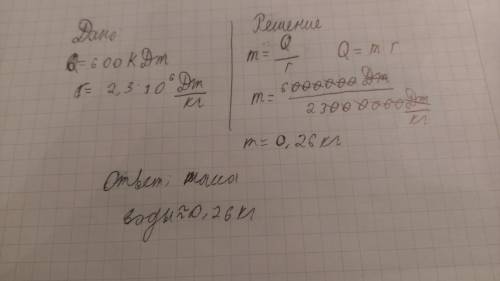 Дано
Q=600 кДж
r= 2,3·10⁶ Дж/кг
Решение
m= Q/r    Q = m r
m= 6000000 Дж / 2300 000 Дж/кг
m=0,26 кг
Ответ: масса
воды≈0,26кг